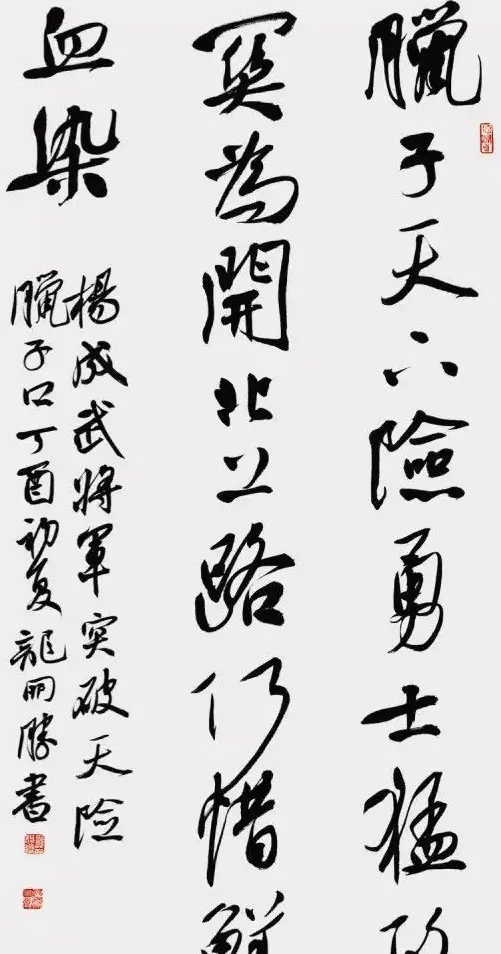 臘子天下險勇士猛攻
關為開北上路何惜鮮
血染
楊成武將軍突破天險
臘子口丁酉初夏龍開勝書